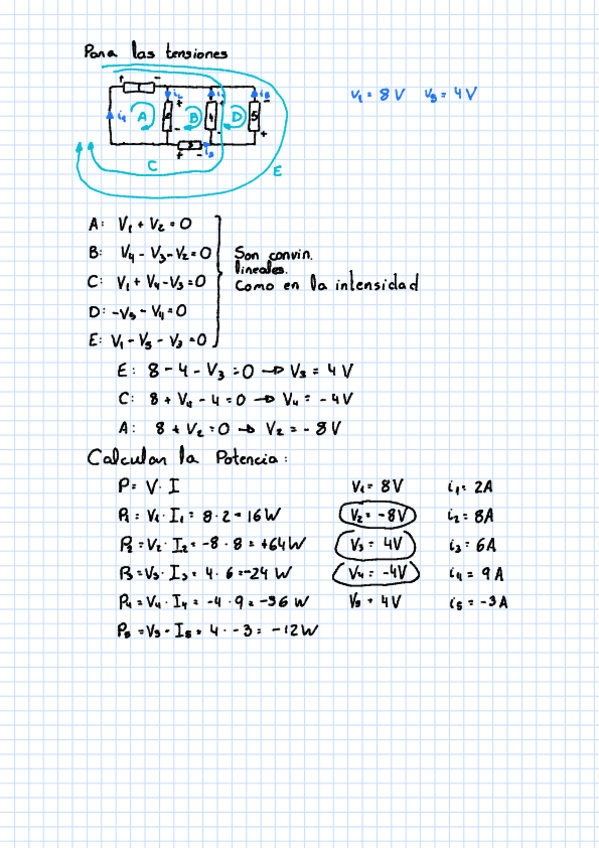 Para las tensiones
V₁ = 8V V₅ = 4V
A B D
C
E
A: V₁ + V₂ = 0
B: V₄ - V₃ - V₂ = 0
C: V₁ + V₄ - V₃ = 0
D: -V₅ - V₄ = 0
E: V₁ - V₅ - V₃ = 0
Son convin.
lineales.
Como en la intensidad
E: 8 - 4 - V₃ = 0 → V₃ = 4V
C: 8 + V₄ - 4 = 0 → V₄ = -4V
A: 8 + V₂ = 0 → V₂ = -8V
Calcular la Potencia:
P = V · I V₁ = 8V i₁ = 2A
P₁ = V₁ · I₁ = 8 · 2 = 16W V₂ = -8V i₂ = 8A
P₂ = V₂ · I₂ = -8 · 8 = +64W V₃ = 4V i₃ = 6A
P₃ = V₃ · I₃ = 4 · 6 = -24W V₄ = -4V i₄ = 9A
P₄ = V₄ · I₄ = -4 · 9 = -36W V₅ = 4V i₅ = -3A
P₅ = V₅ · I₅ = 4 · -3 = -12W